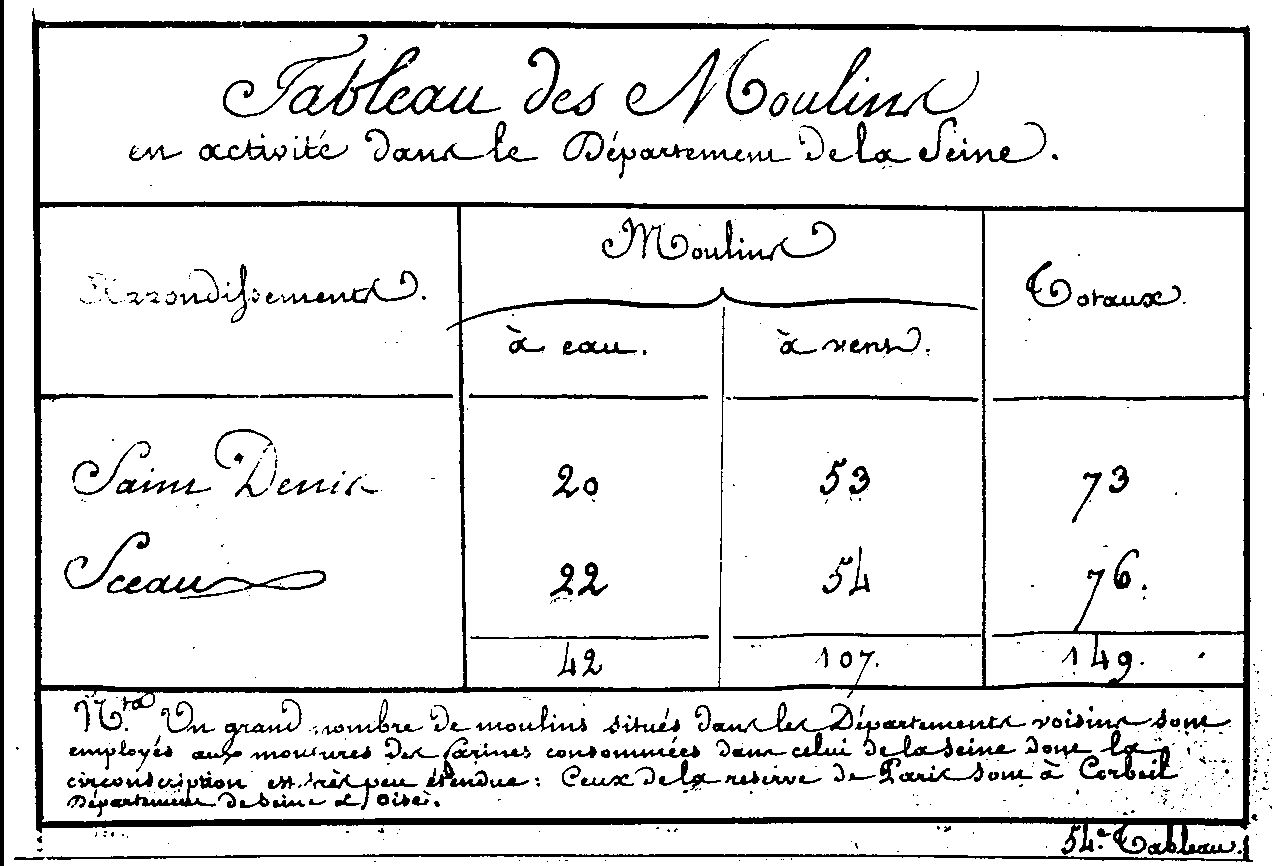 Tableau des Moulins
en activité dans le Département de la Seine.
Arrondissements.
Moulins
Totaux.
à eau.
à vent.
Saint Denis 20 53 73
Sceau 22 54 76.
42 107. 149.
N.ta Un grand nombre de moulins situés dans les Départements voisins sont
employés aux moutures des farines consommées dans celui de la Seine dont la
circonscription est très peu étendue: Ceux de la reserve de Paris sont à Corbeil
Département de Seine et Oise.
54.e Tableau.